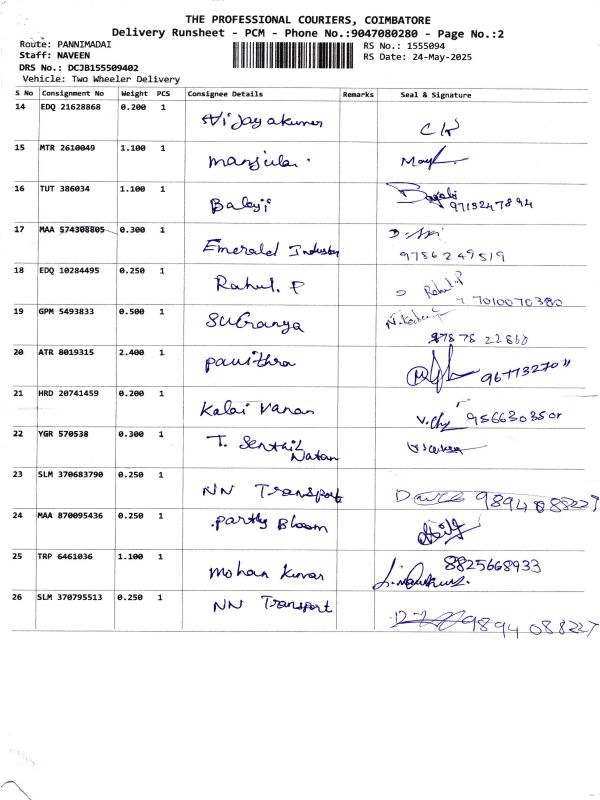 THE PROFESSIONAL COURIERS, COIMBATORE
Delivery Runsheet - PCM - Phone No.:9047080280 - Page No.:2
Route: PANNIMADAI
RS No.: 1555094
Staff: NAVEEN
RS Date: 24-May-2025
DRS No.: DCJB155509402
Vehicle: Two Wheeler Delivery
S No Consignment No Weight PCS Consignee Details Remarks Seal & Signature
14 EDQ 21628868 0.200 1 Vijayakumar
15 MTR 2610049 1.100 1 Manjula.
16 TUT 386034 1.100 1 Balaji
17 MAA 574308805 0.300 1 Emerald Industry 9786249519
18 EDQ 10284495 0.250 1 Rahul. P Rahul.P 7010070380
19 GPM 5493833 0.500 1 Suganya
20 ATR 8019315 2.400 1 Pavithra
21 HRD 20741459 0.200 1 Kalai Vanan
22 YGR 570538 0.300 1 T. Senthil Natan
23 SLM 370683790 0.250 1 NN Transport 9894088227
24 MAA 870095436 0.250 1 Partly Bloom
25 TRP 6461036 1.100 1 Mohan Kumar 8825668933
26 SLM 370795513 0.250 1 NN Transport 9894088227